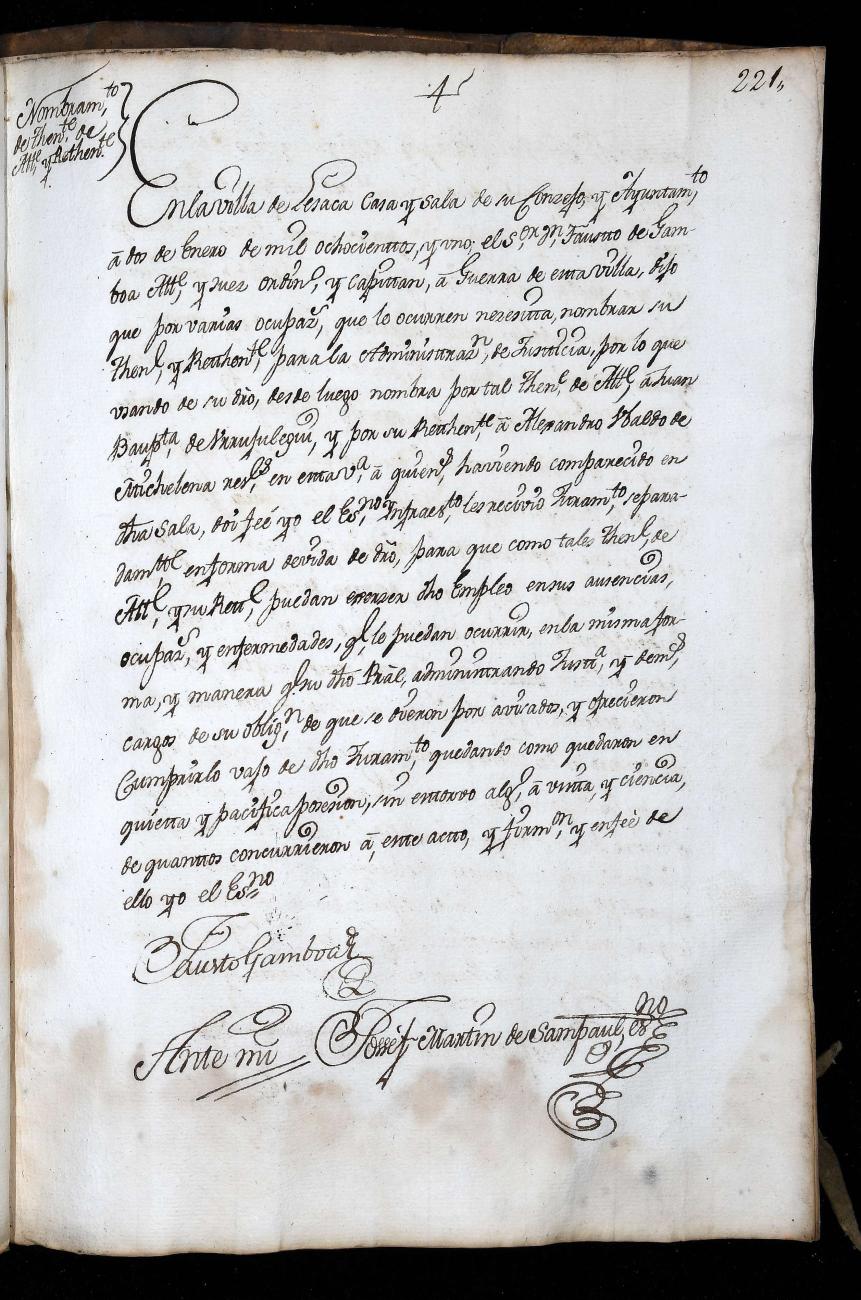 4
221,,
Nombramto,
de thente, de
Alle, y Rethente.
En la villa de Lesaca Casa y sala de su Conzejo, y Ayuntamto,
â dos de Enero de mil ochocienttos, y uno; el Senor, Dn, Faustto de Gam-
boa Alle, y Juez ordino, y Capittan, â Guerra de esta villa, dijo
que por varias ocupazs, que lo ocurren nezesitta, nombrar su
thene, y Retthente, para la Administrazn, de Justticia, por lo que
usando de su dro, desde luego nombra por tal thene, de Alle, â Juan
Baupta, de Urrusulegui, y por su Retthente, â Alexandro Ubaldo de
Michelena ress, en esta va, â quienes, haviendo comparecido en
dha sala, doi feé yo el Esno, Infraesto, les recivio Juramto, separa-
damtte, en forma devida de dro, para que como tales thene, de
Alle, y su Rett, puedan exerzer dho Empleo en sus ausencias,
ocupazs, y enfermedades, qe, le puedan ocurrir, en la misma for-
ma, y manera qe su dho Pral, administrando Justta, y dems,
cargos de su obligon, de que se dieron por avisados, y ofrecieron
Cumprirlo vajo de dho Juramto, quedando como quedaron en
quietta y pacifica posesion, sin estorvo algo, â vista, y ciencia,
de quanttos concurrieron â, este actto, y firmon, y en feè de
ello yo el Esno
Fausto Gamboa
Ante mi Josseph Martin de Sampaul, esno